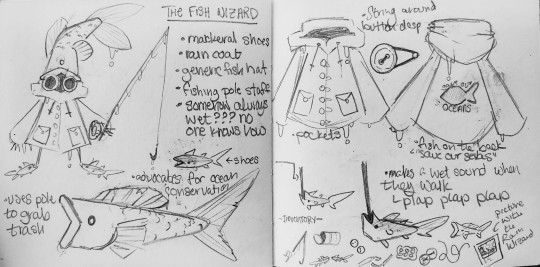 THE FISH WIZARD
• mackeral shoes
• rain coat
• generic fish hat
• fishing pole staff
• somehow always
wet??? no
one knows how
← shoes
• advocates for ocean
conservation
• uses pole
to grab
trash
• String around
button clasp
pockets!
OCEANS
• fish on the back
"save our seas"
• makes a wet sound when
they walk
↳ plap plap plap
Inventory
picture
with
the
Rain
Wizard